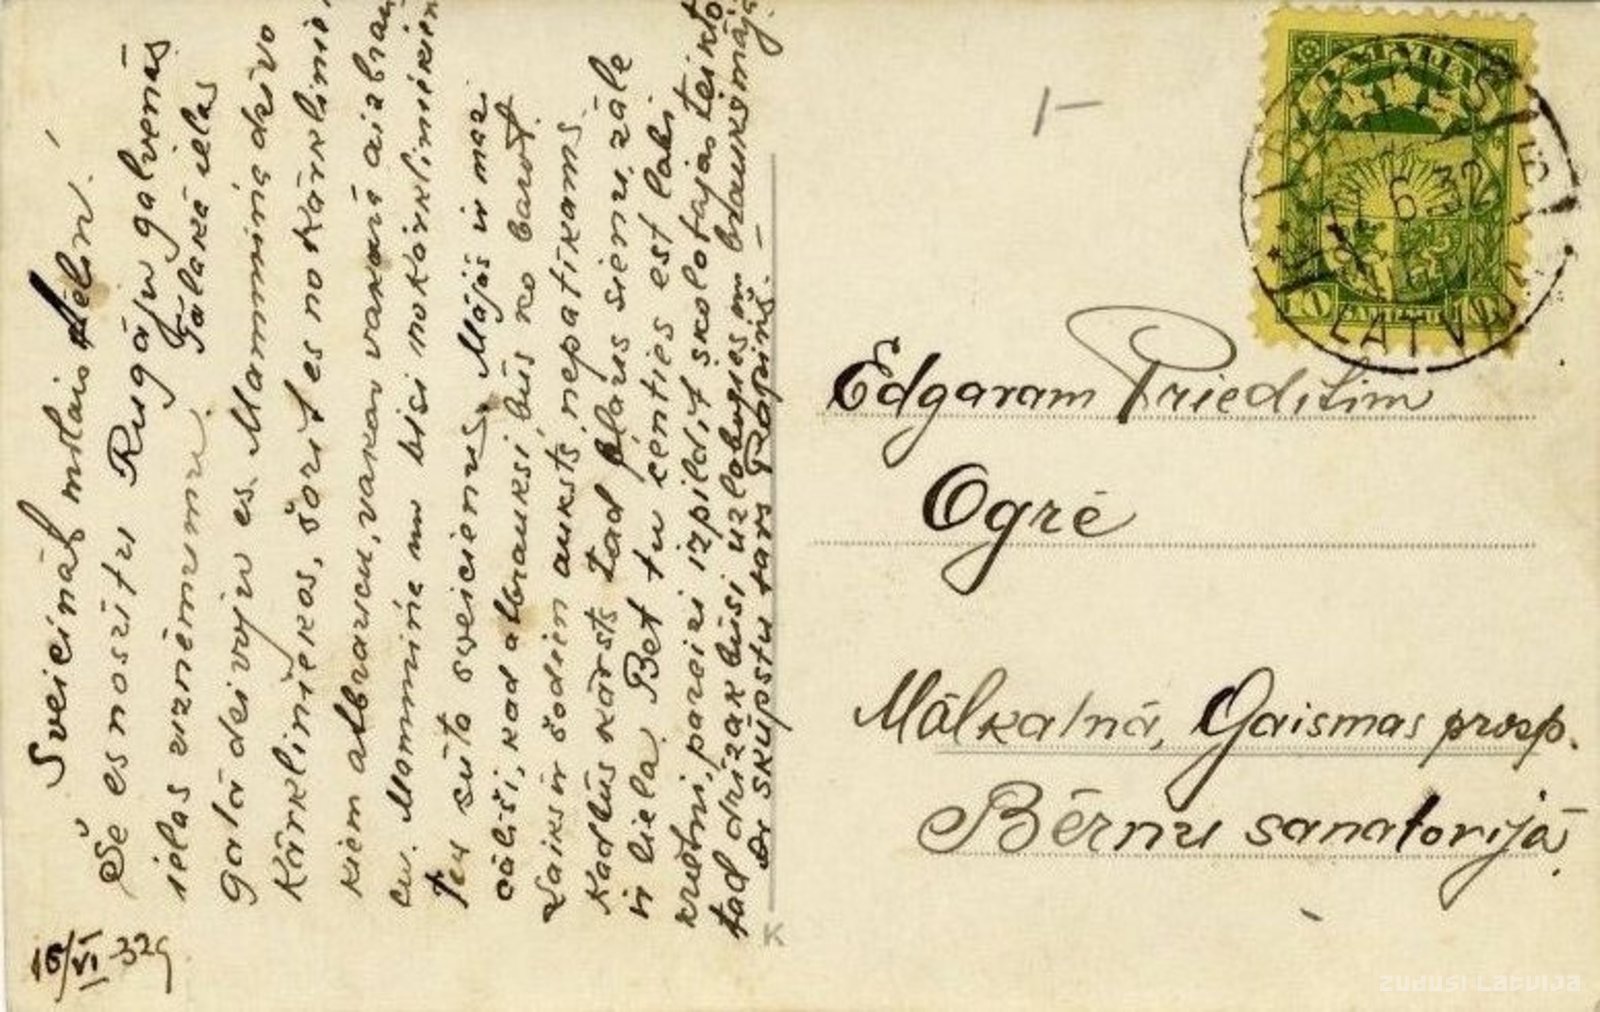 Sveicināts mīļais dēliņ!
Še es nosūtu Rugāju galvenās
ielas uzņēmumu. Tālākā ielas
galā dzīvoju es. Mammiņa dzīvo
Kārkliniekos, šorīt es no Kārklinie-
kiem atbraucu, vakar vakarā aizbrau-
cu. Mammiņa un visi no Kārkliniekiem
Tev sūta sveicienus. Mājās ir mazi
cālīši, kad atbrauksi, būs ko barot.
Laiks ir šodien auksts, nepatīkams.
Kad būs karsts tad pļaus sienu, zāle
ir liela. Bet tu centies ēst labi
krietni, pareizi izpildīt skolotājas teikto
tad drīzāk būsi uzlabojies un brauksi mājā.
Ar skūpstu tavs Papiņš.
15/VI 32g
LATVIJAS
6 32
10 10
LATVIJA
Edgaram Priedītim
Ogrē
Mālkalnā, Gaismas prosp.
Bērnu sanatorijā.
K
ZUDUSI LATVIJA